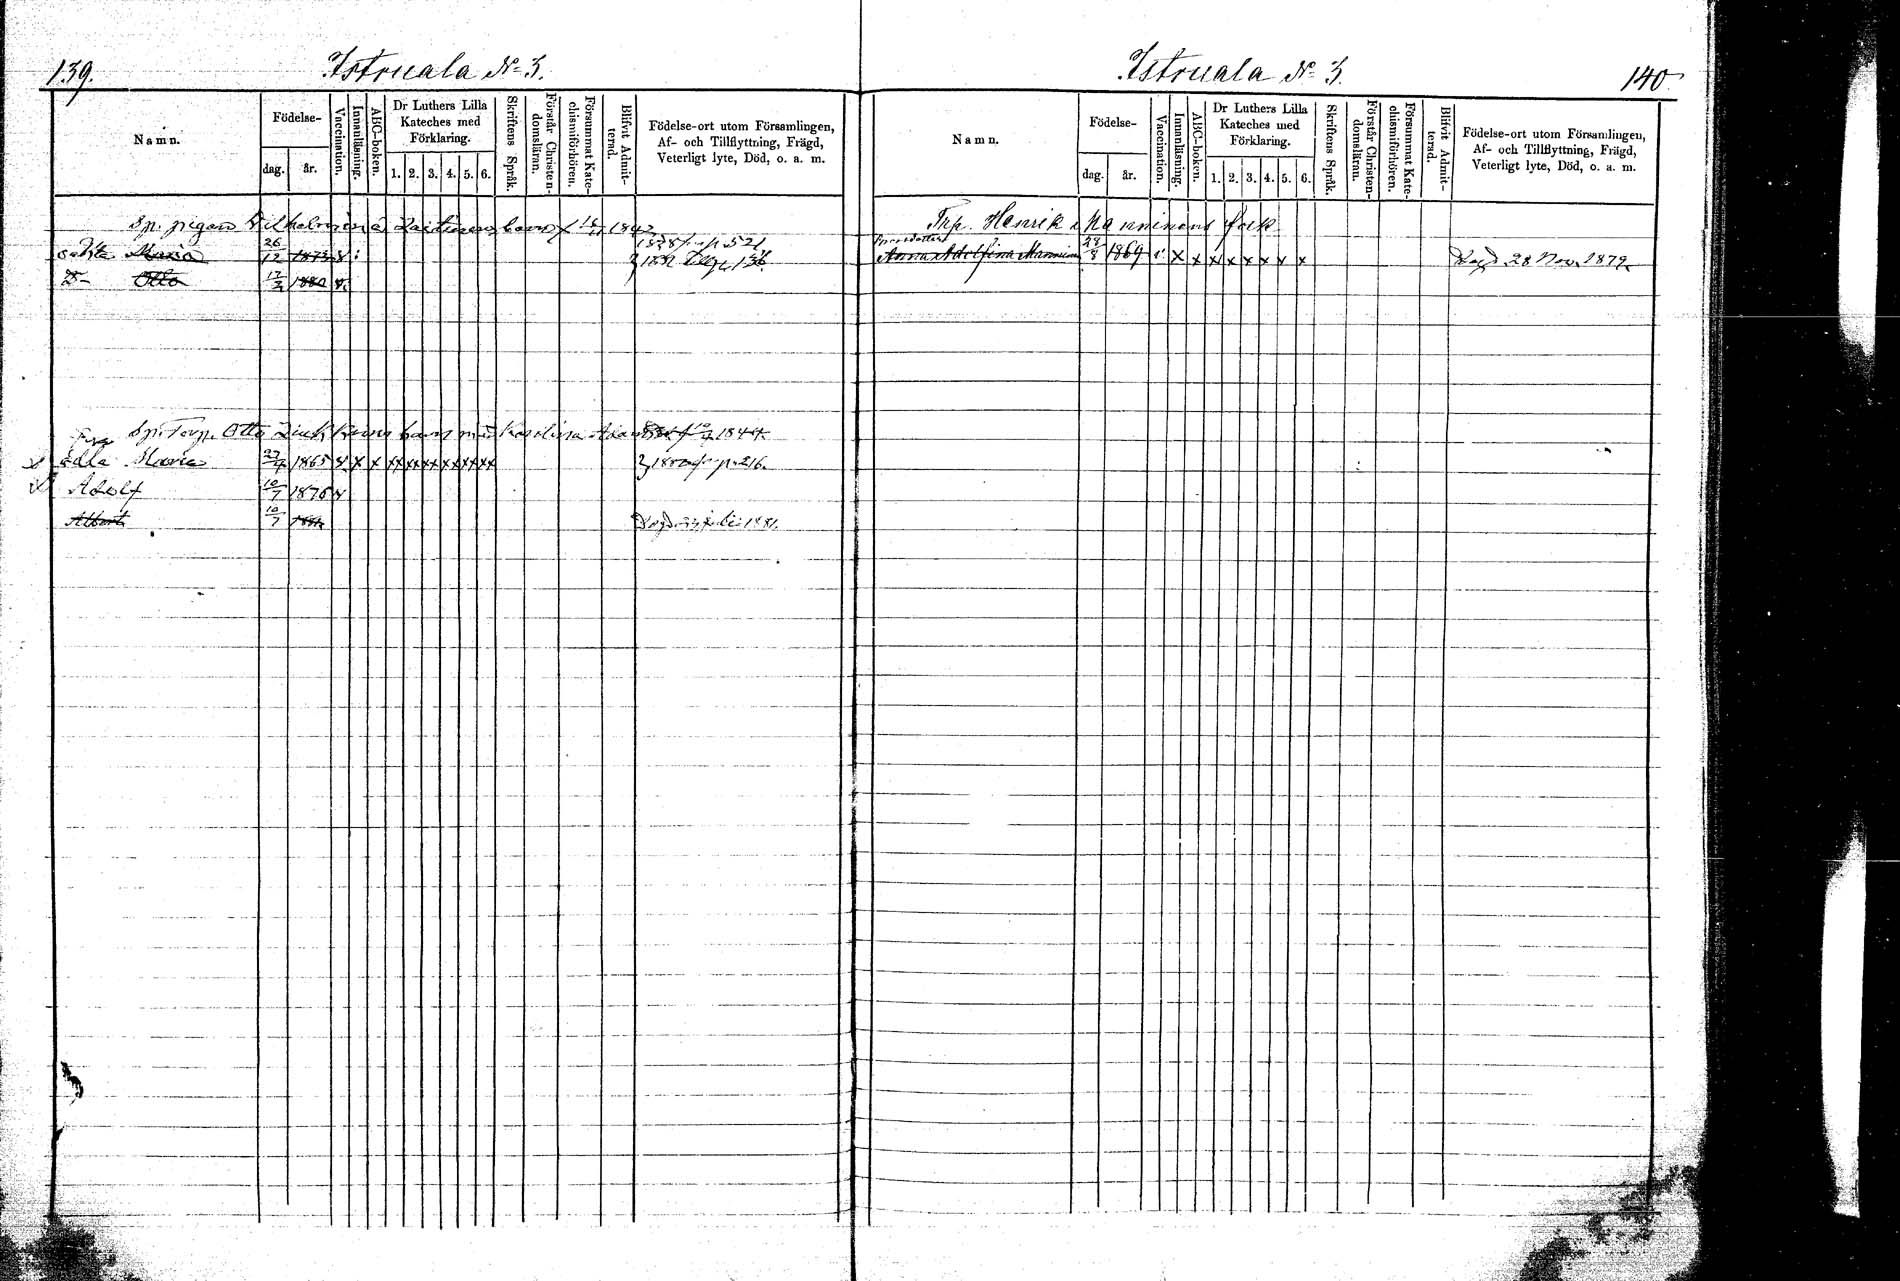 139.
Istruala № 3.
Namn.
Födelse-
dag.
år.
Vaccination.
Innanläsning.
ABC-boken.
Dr Luthers Lilla
Kateches med
Förklaring.
1. 2. 3. 4. 5. 6.
Skriftens Språk.
Förstår Christen-
domsläran.
Försummat Kate-
chismiförhören.
Blifvit Admit-
terad.
Födelse-ort utom Församlingen,
Af- och Tillflyttning, Frägd,
Veterligt lyte, Död, o. a. m.
Sp. pigan Vilhelmina Laitinens barn f 1842
Maria 26/12 1873
Otto 17/7 1880
Sp. Torp. Otto barn med Karolina 1844.
Maria 27/4 1865 x x x x x x x x x x x x 1880 fr. p. 216.
Adolf 10/7 1876
Albert 10/7 1881 Död juli 1881.
Istruala № 3.
140.
Namn.
Födelse-
dag.
år.
Vaccination.
Innanläsning.
ABC-boken.
Dr Luthers Lilla
Kateches med
Förklaring.
1. 2. 3. 4. 5. 6.
Skriftens Språk.
Förstår Christen-
domsläran.
Försummat Kate-
chismiförhören.
Blifvit Admit-
terad.
Födelse-ort utom Församlingen,
Af- och Tillflyttning, Frägd,
Veterligt lyte, Död, o. a. m.
Trp. Henrik Manninens folk
Anna Adolfina Manninen 28/8 1869 x x x x x x x x Död 28 Nov. 1879.